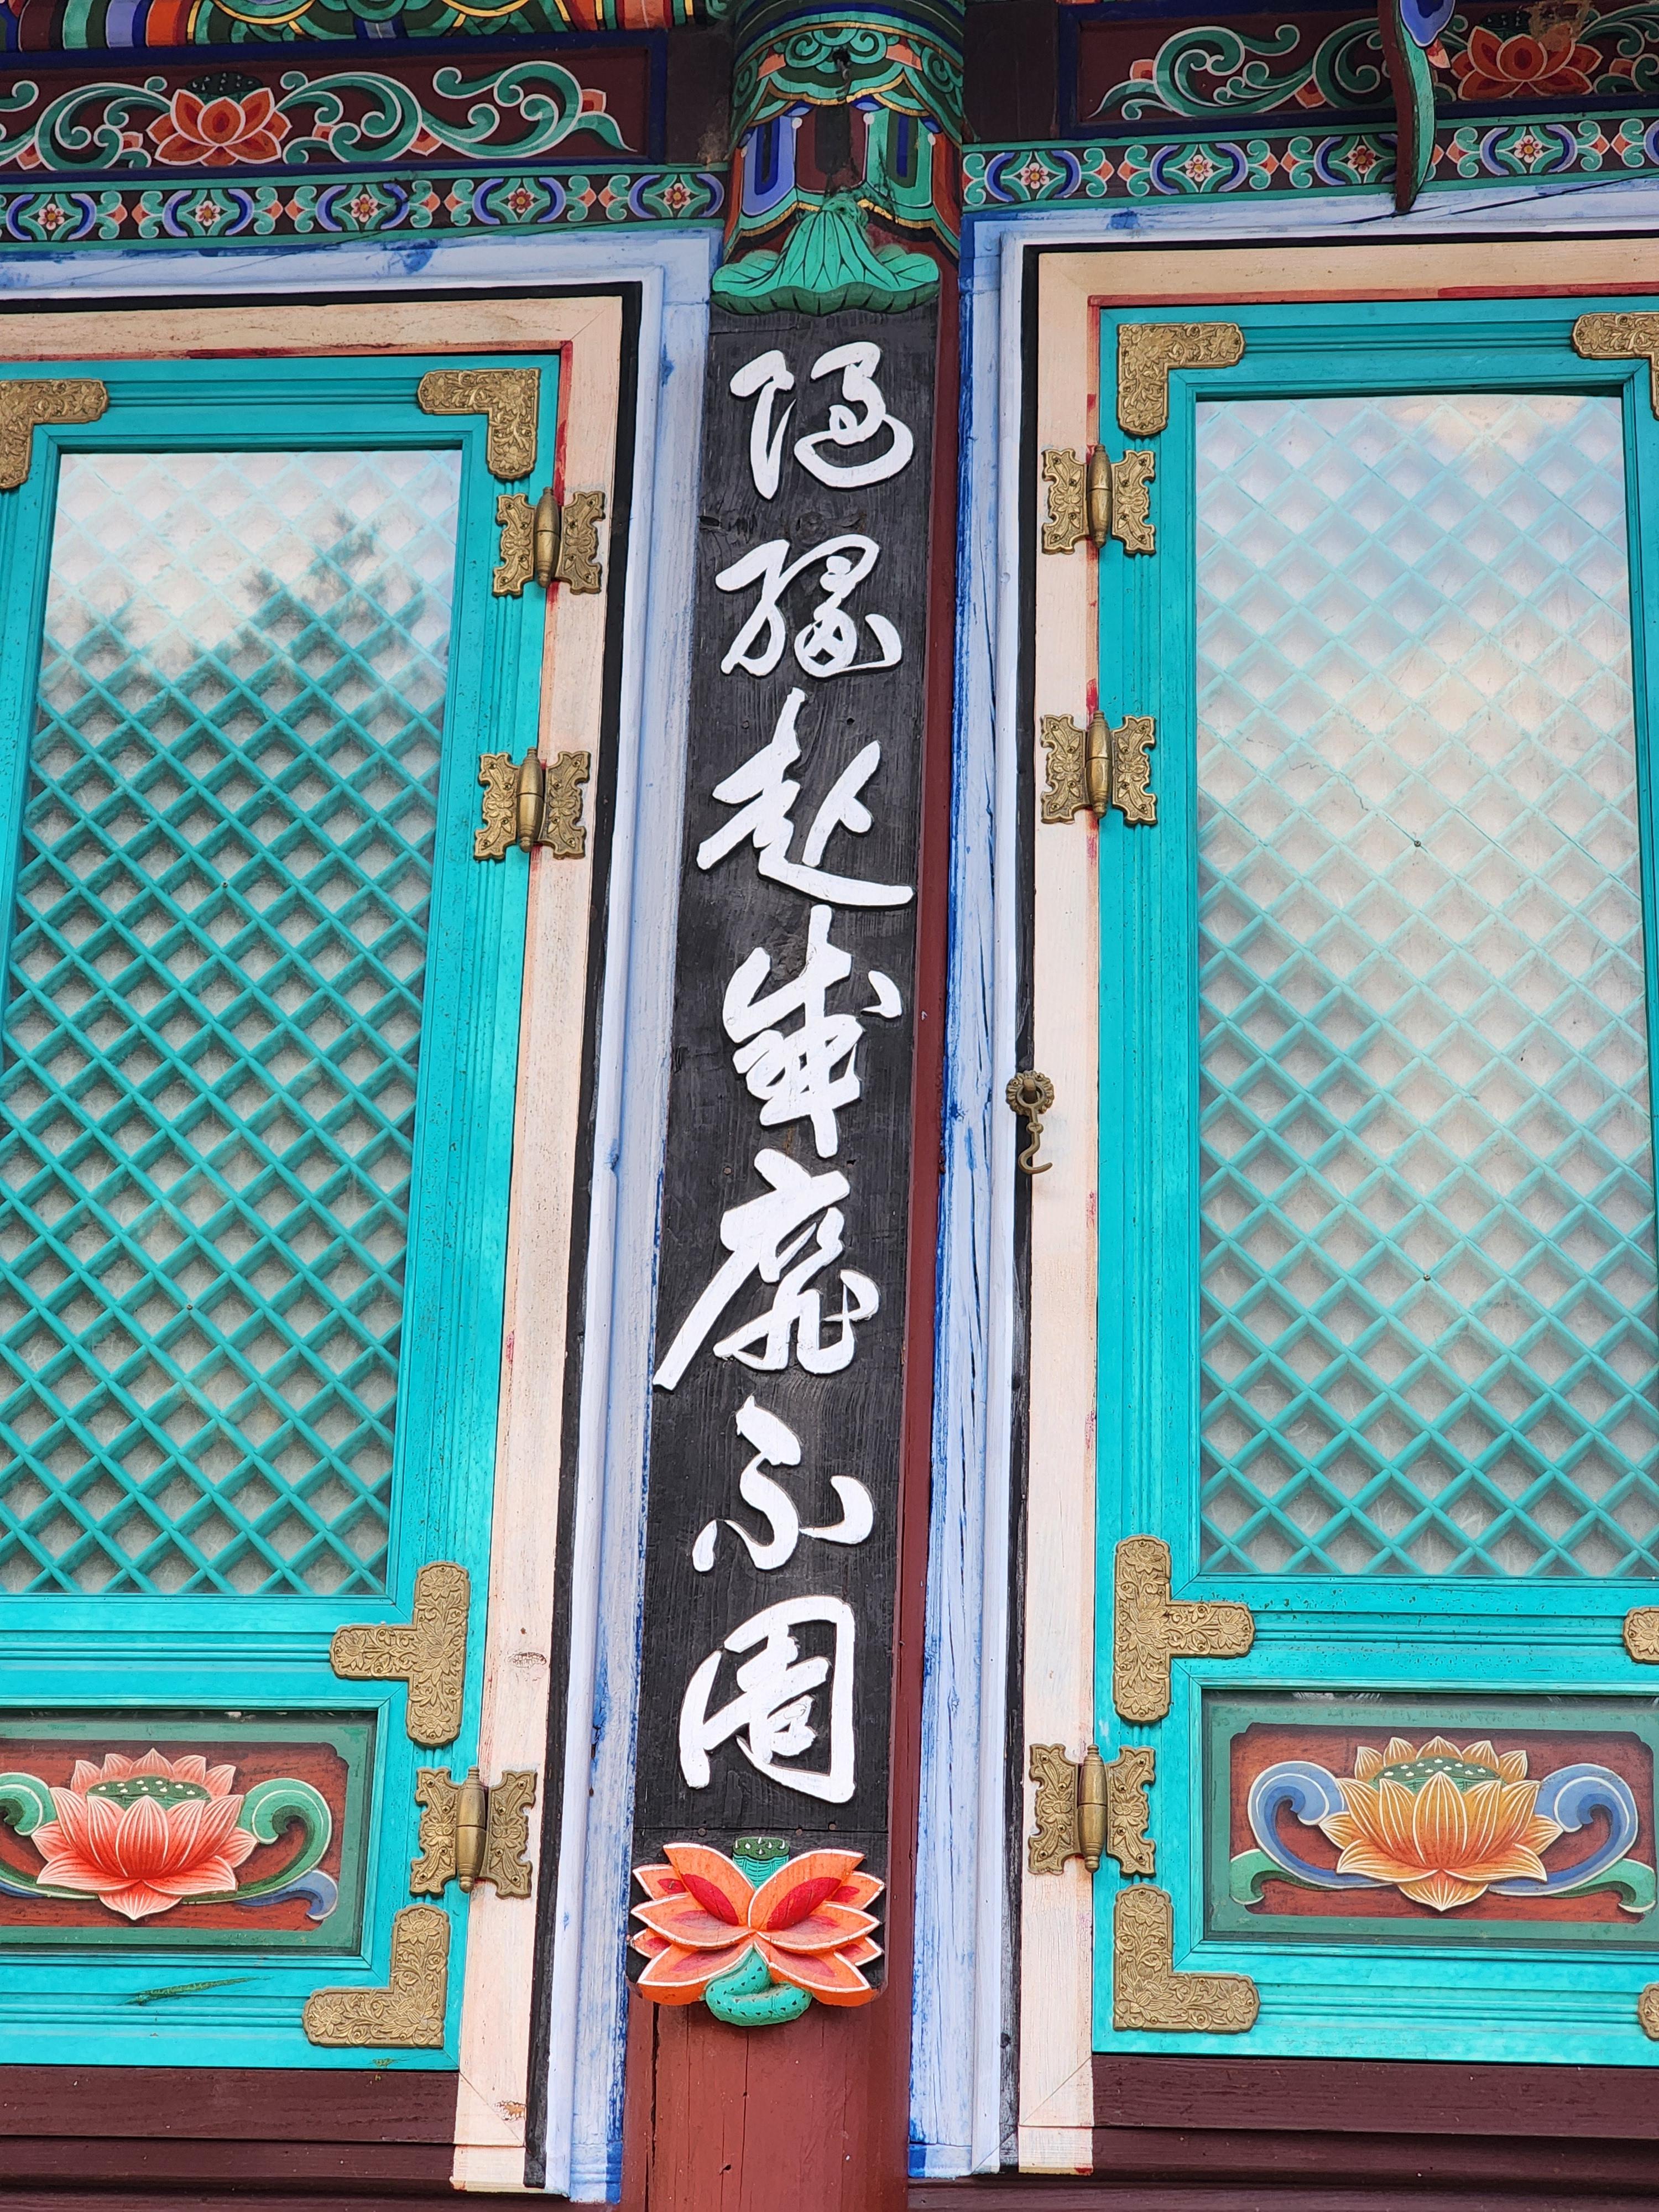 随緣赴感靡不周